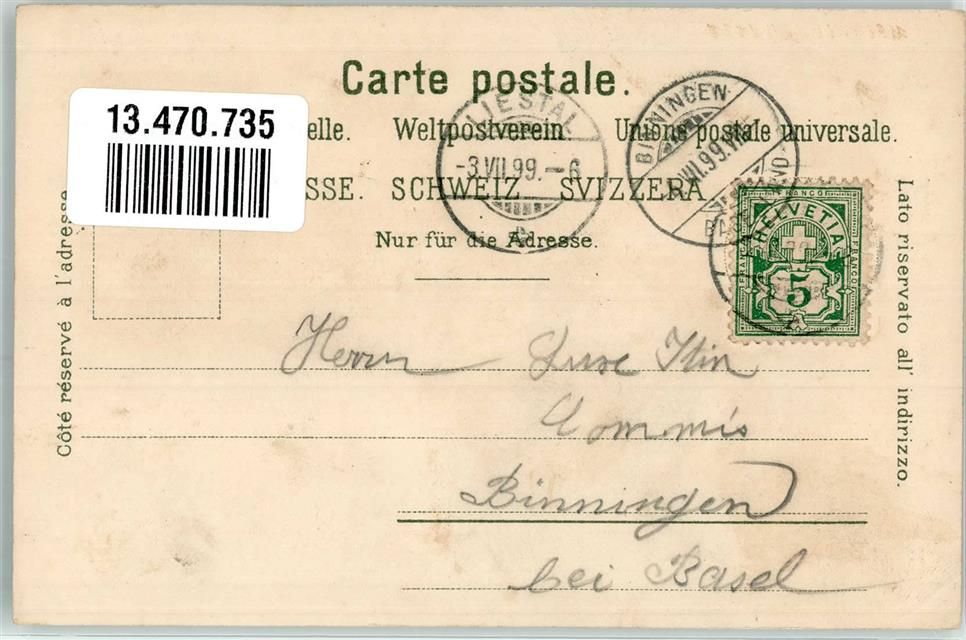 Carte postale.
13.470.735
elle. Weltpostverein. Unione postale universale.
SSE. SCHWEIZ SVIZZERA
Nur für die Adresse.
LIESTAL
-3.VII.99.-6
BINNINGEN
VII.99.VI
FRANCO
HELVETIA
5
Côté réservé à l'adresse
Lato riservato all' indirizzo.
Herrn
Commis
Binningen
bei Basel